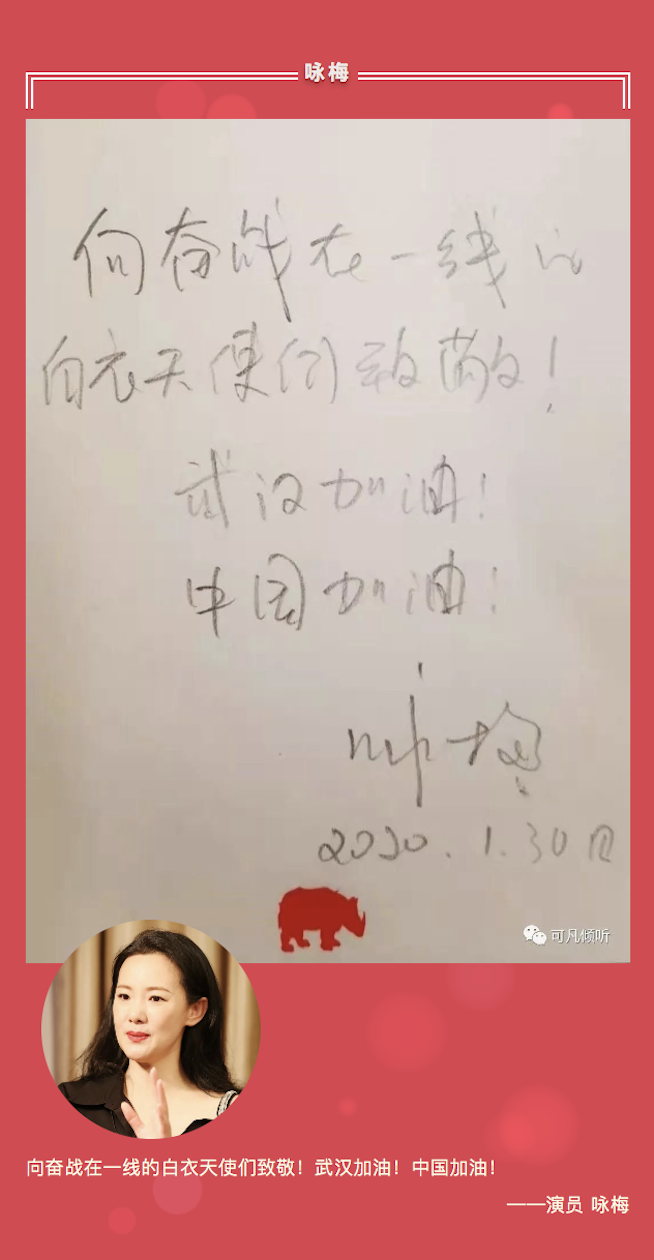 咏梅
向奋战在一线的
白衣天使们致敬！
武汉加油！
中国加油！
咏梅
2020.1.30日
可凡倾听
向奋战在一线的白衣天使们致敬！武汉加油！中国加油！
——演员 咏梅